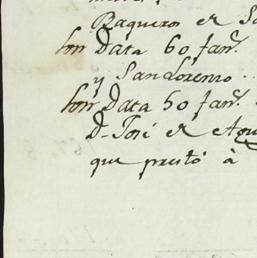 Baqueros er Sa
por Data 60 fan.
y San Lorenzo..
por Data 50 fan.
D. José er Agu
que prestó à